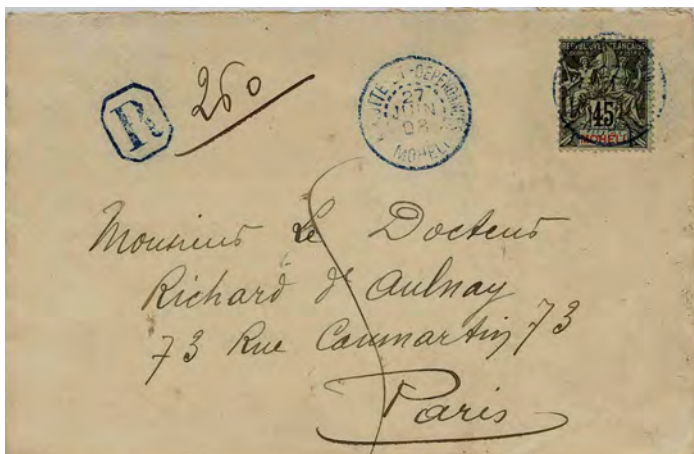 R
260
MAYOTTE ET DÉPENDANCES
27
JUIN
08
MOHELI
RÉPUBLIQUE FRANÇAISE
45
MOHELI
Monsieur le Docteur
Richard d'Aulnay
73 Rue Caumartin 73
Paris